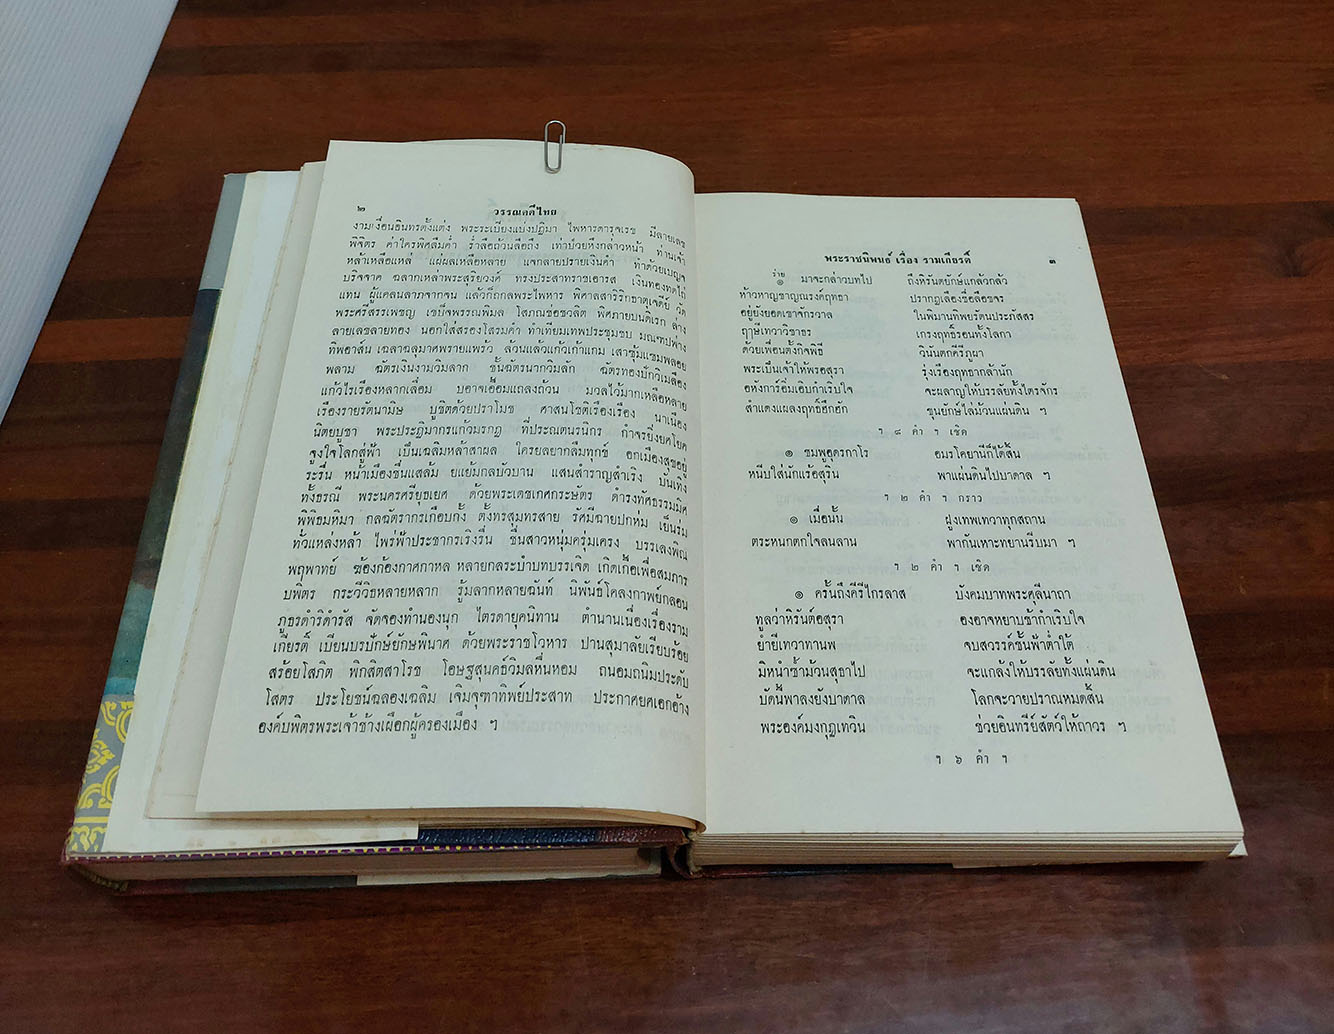 ๒ วรรณคดีไทย
งามเงื่อนอินทรตั้งแต่ง พระระเบียงแบ่งปฏิมา ไพหารดารุคเรข มีลายเลข
พิจิตร ค่าใครพิศลืมค่ำ ร่ำลือถ้วนลือถึง เท่าป่วยหึงกล่าวหน้า ท่านเจ้า
หล้าเหลือแหล่ แผ่ผลเหลือหลาย แจกลายปรายเงินคำ ทำด้วยเบญจ
บริจจาค ฉลากเหล่าพระสุริยวงศ์ ทรงประสาทราชเอารส เงินทองทดไถ่
แทน ผู้แคลนลากจากจน แล้วก็ถกลพระไพหาร พิศาลสาริริกธาตุเจดีย์ วัด
พระศรีสรรเพชญ เขบ็จพรรณพิมล โสภณช่อชวลิต พิศภายบนดิเรก ล่าง
ลายเลขลายทอง นอกใส่สรองโสรมคำ ทำเทียมเทพประชุมชบ มณฑปพ่าง
ทิพอาส์น เฉลาฉลุมาศพรายแพร้ว ล้วนแล้วแก้วเก้าแกม เสาซุ้มแซมพลอย
พลาม ฉัตรเงินงามวิมลาก ชั้นฉัตรนากวิมลัก ฉัตรทองปักวิเมลือง
แก้วไรเรืองหลากเลื่อม บอาจเอื้อมแถลงถ้วน มวลไว้มากเหลือหลาย
เรืองรายรัตนามิษ บูชิตด้วยปราโมช ศาสนโชติเรืองเรือง นาเนือง
นิตยบูชา พระประฎิมากรแก้วมรกฎ ที่ประณตนรนิกร กำจรยิ่งยศโยค
จูงใจโลกสู่ฟ้า เป็นเฉลิมหล้าสาผล ใครยลยากลืมทุกข์ อกเมืองสุขอยู่
ระรื่น หน้าเมืองชื่นแสล้ม ยแย้มกลบัวบาน แสนสำราญสำเริง บันเทิง
ทั้งธรณี พระนครศรียุธเยศ ด้วยพระเดชเกศกระษัตร ดำรงทัศธรรมมิศ
พิพิธมหิมา กลฉัตรากรเกือบกั้ง ตั้งทรสุมทรสาย รัศมีฉายปกห่ม เย็นร่ม
ทั่วแหล่งหล้า ไพร่ฟ้าประชากรเริงรื่น ชื่นสาวหนุ่มครุ่มเครง บรรเลงพิณ
พฤพาทย์ ฆ้องก้องกาศกาหล หลายกลระบำบทบรรเจิด เกิดเกื้อเพื่อสมภาร
บพิตร กระวีวิธีหลายหลาก รู้มลากหลายฉันท์ นิพันธ์โคลงกาพย์กลอน
ภูธรดำริดำรัส จัดจองทำนองนุก ไตรดายุคนิทาน ตำนานเนื่องเรื่องราม
เกียรต์ เบียนบรปักษ์ยักษพินาศ ด้วยพระราชโวหาร ปานสุมาลัยเรียบร้อย
สร้อยโสภิต พิกสิตสาโรช โอษฐสุนคธ์วิมลหื่นหอม ถนอมถนิมประดับ
โสตร ประโยชน์ฉลองเฉลิม เจิมจุฑาทิพย์ประสาท ประกาศยศเอกอ้าง
องค์บพิตรพระเจ้าช้างเผือกผู้ครองเมือง ฯ
พระราชนิพนธ์ เรื่อง รามเกียรติ์ ๓
ร่าย
๏ มาจะกล่าวบทไป ถึงหิรันตยักษ์แกล้วกล้า
ห้าวหาญชาญณรงค์ฤทธา ปรากฏเลื่องชื่อลือขจร
อยู่ยังยอดเขาจักรวาล ในพิมานทิพยรัตนประภัสสร
ฤๅษีเทวาวิชาธร เกรงฤทธิ์รอนทั้งโลกา
ด้วยเพื่อนตั้งกิจพิธี วินันตกคีรีภูผา
พระเป็นเจ้าให้พรอสุรา รุ่งเรืองฤทธากล้านัก
อหังการ์อิ่มเอิบกำเริบใจ จะผลาญให้บรรลัยทั้งไตรจักร
สำแดงแผลงฤทธิ์ฮึกฮัก ขุนยักษ์ไล่ม้วนแผ่นดิน ฯ
ฯ ๘ คำ ฯ เชิด
๏ ชมพูอุดรกาโร อมรโคยานีก็ได้สิ้น
หนีบใส่นักแร้อสุริน พาแผ่นดินไปบาดาล ฯ
ฯ ๒ คำ ฯ กราว
๏ เมื่อนั้น ฝูงเทพเทวาทุกสถาน
ตระหนกตกใจลนลาน พากันเหาะทยานรีบมา ฯ
ฯ ๒ คำ ฯ เชิด
๏ ครั้นถึงคีรีไกรลาส บังคมบาทพระศุลีนาถา
ทูลว่าหิรันต์อสุรา องอาจหยาบช้ากำเริบใจ
ย่ำยีเทวาทานพ จบสวรรค์ชั้นฟ้าต่ำใต้
มิหนำซ้ำม้วนสุธาไป จะแกล้งให้บรรลัยทั้งแผ่นดิน
บัดนี้พาลงยังบาดาล โลกจะวายปราณหมดสิ้น
พระองค์มงกุฎเทวิน ช่วยอินทรีย์สัตว์ให้ถาวร ฯ
ฯ ๖ คำ ฯ